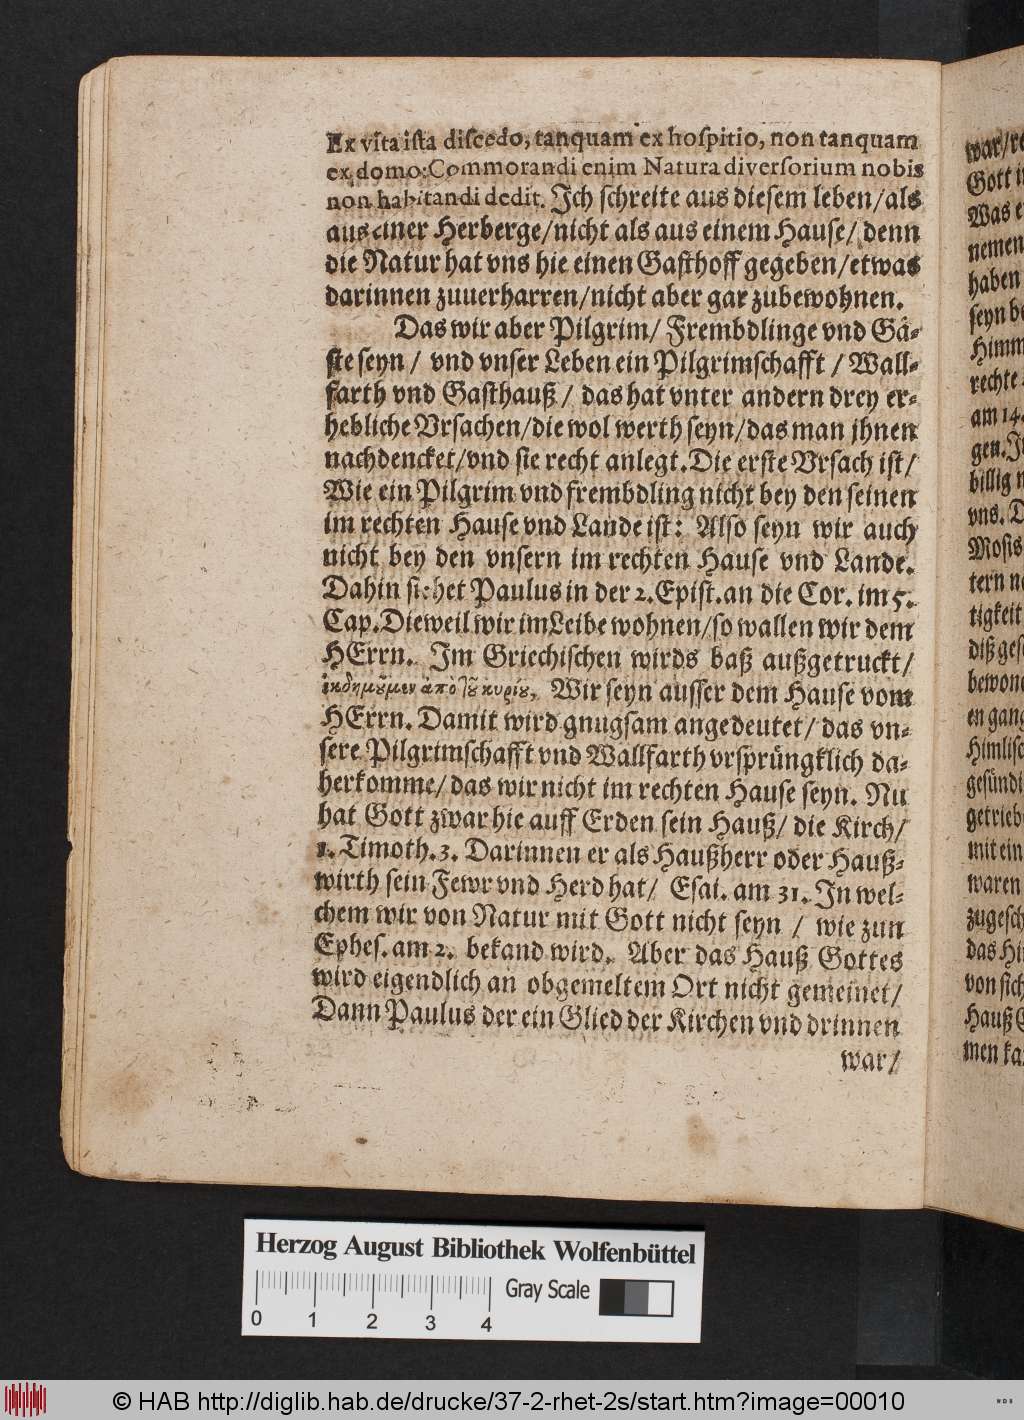 Ex vita ista discedo, tanquam ex hospitio, non tanquam
ex domo: Commorandi enim Natura diversorium nobis
non habitandi dedit. Ich schreite aus diesem leben/als
aus einer Herberge/nicht als aus einem Hause/ denn
die Natur hat vns hie einen Gasthoff gegeben/etwas
darinnen zuuerharren/nicht aber gar zubewohnen.
Das wir aber Pilgrim/ Frembdlinge vnd Gä-
ste seyn / vnd vnser Leben ein Pilgrimschafft / Wall-
farth vnd Gasthauß / das hat vnter andern drey er-
hebliche Vrsachen/die wol werth seyn/das man jhnen
nachdencket/vnd sie recht anlegt. Die erste Vrsach ist/
Wie ein Pilgrim vnd frembdling nicht bey den seinen
im rechten Hause vnd Lande ist: Also seyn wir auch
nicht bey den vnsern im rechten Hause vnd Lande.
Dahin siehet Paulus in der 2. Epist. an die Cor. im 5.
Cap. Dieweil wir im Leibe wohnen/so wallen wir dem
HErrn. Im Griechischen wirds baß außgetruckt/
ἐκδημοῦμεν ἀπὸ τοῦ κυρίου, Wir seyn ausser dem Hause vom
HErrn. Damit wird gnugsam angedeutet/ das vn-
sere Pilgrimschafft vnd Wallfarth vrsprüngklich da-
herkomme/ das wir nicht im rechten Hause seyn. Nu
hat Gott zwar hie auff Erden sein Hauß/ die Kirch/
1. Timoth. 3. Darinnen er als Haußherr oder Hauß-
wirth sein Fewr vnd Herd hat/ Esai. am 31. In wel-
chem wir von Natur mit Gott nicht seyn / wie zun
Ephes. am 2. bekand wird. Aber das Hauß Gottes
wird eigendlich an obgemeltem Ort nicht gemeinet/
Dann Paulus der ein Glied der Kirchen vnd drinnen
war/
war/
Gott
Was
nemen
haben
seyn
Himm
rechte
am 14.
gen.
billig
vns.
Mosis
tern
tigkeit
diß
bewone
en gang
Himlisc
gesündi
getriebe
mit ein
waren
zugesch
das
von sich
Hauß
men
Herzog August Bibliothek Wolfenbüttel
Gray Scale
0 1 2 3 4
© HAB http://diglib.hab.de/drucke/37-2-rhet-2s/start.htm?image=00010